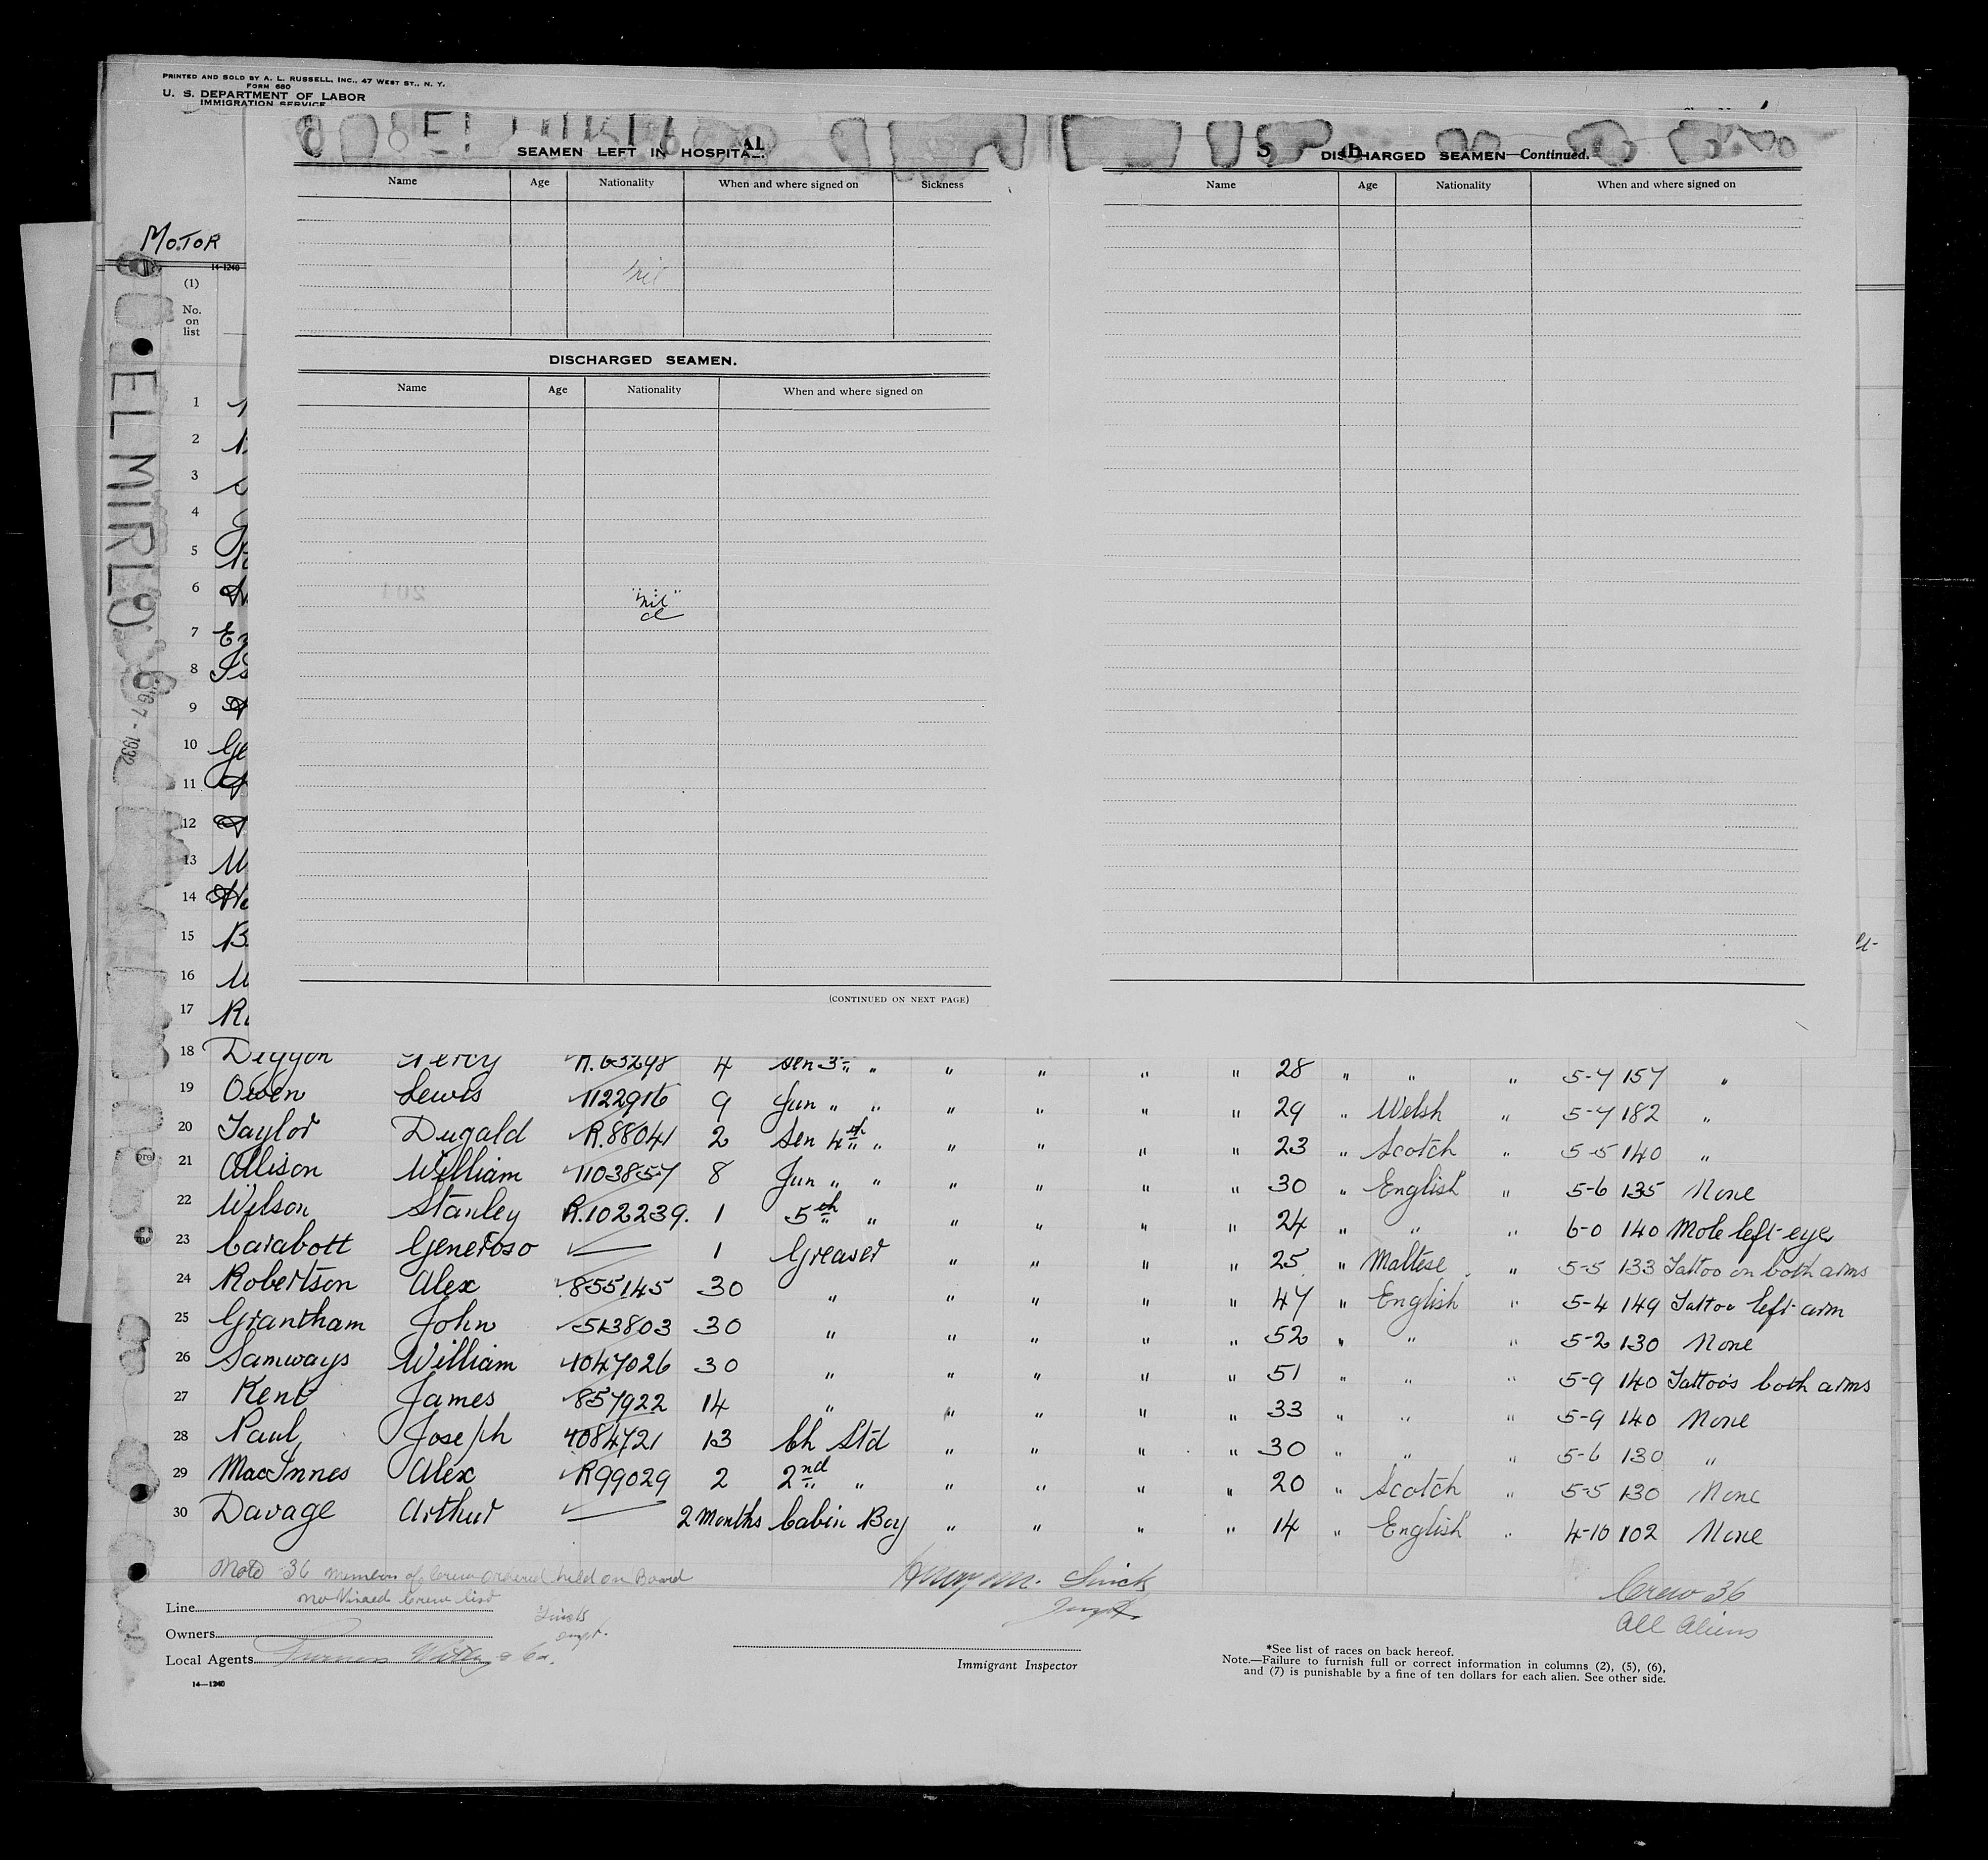 PRINTED AND SOLD BY A. L. RUSSELL, INC., 47 WEST ST., N. Y.
FORM 680
U. S. DEPARTMENT OF LABOR
IMMIGRATION SERVICE
MOTOR
14-1240
(1)
No. on list
EL MIRLO
1932
SEAMEN LEFT IN HOSPITAL.
Name Age Nationality When and where signed on Sickness
nil
DISCHARGED SEAMEN.
Name Age Nationality When and where signed on
"nil"
(CONTINUED ON NEXT PAGE)
DISCHARGED SEAMEN—Continued.
Name Age Nationality When and where signed on
1
2
3
4
5
6
7
8
9
10
11
12
13
14
15
16
17
18 Diggon Percy R.63298 4 Sen 3rd " " " " " 28 " " " 5-7 157 "
19 Owen Lewis 1122916 9 Jun " " " " " " 29 " Welsh " 5-7 182 "
20 Taylor Dugald R.88041 2 Sen 4th " " " " " 23 " Scotch " 5-5 140 "
21 Allison William 1103857 8 Jun " " " " " " 30 " English " 5-6 135 None
22 Wilson Stanley R.102239. 1 5th " " " " " 24 " " " 6-0 140 Mole left eye
23 Carabott Generoso 1 Greaser " " " " 25 " Maltese " 5-5 133 Tattoo on both arms
24 Robertson Alex 855145 30 " " " " " 47 " English " 5-4 149 Tattoo left arm
25 Grantham John 513803 30 " " " " " 52 " " " 5-2 130 None
26 Samways William 1047026 30 " " " " " 51 " " " 5-9 140 Tattoos both arms
27 Kent James 857922 14 " " " " " 33 " " " 5-9 140 None
28 Paul Joseph 1084721 13 Ch Std " " " " 30 " " " 5-6 130 "
29 MacInnes Alex R99029 2 2nd " " " " " 20 " Scotch " 5-5 130 None
30 Davage Arthur 2 Months Cabin Boy " " " " 14 " English " 4-10 102 None
Note 36 members of Crew ordered held on Board
no Visaed Crew list
Crew 36
All Aliens
Line
Owners
Local Agents Furness Withy & Co.
Immigrant Inspector
14—1240
*See list of races on back hereof.
Note.—Failure to furnish full or correct information in columns (2), (5), (6),
and (7) is punishable by a fine of ten dollars for each alien. See other side.